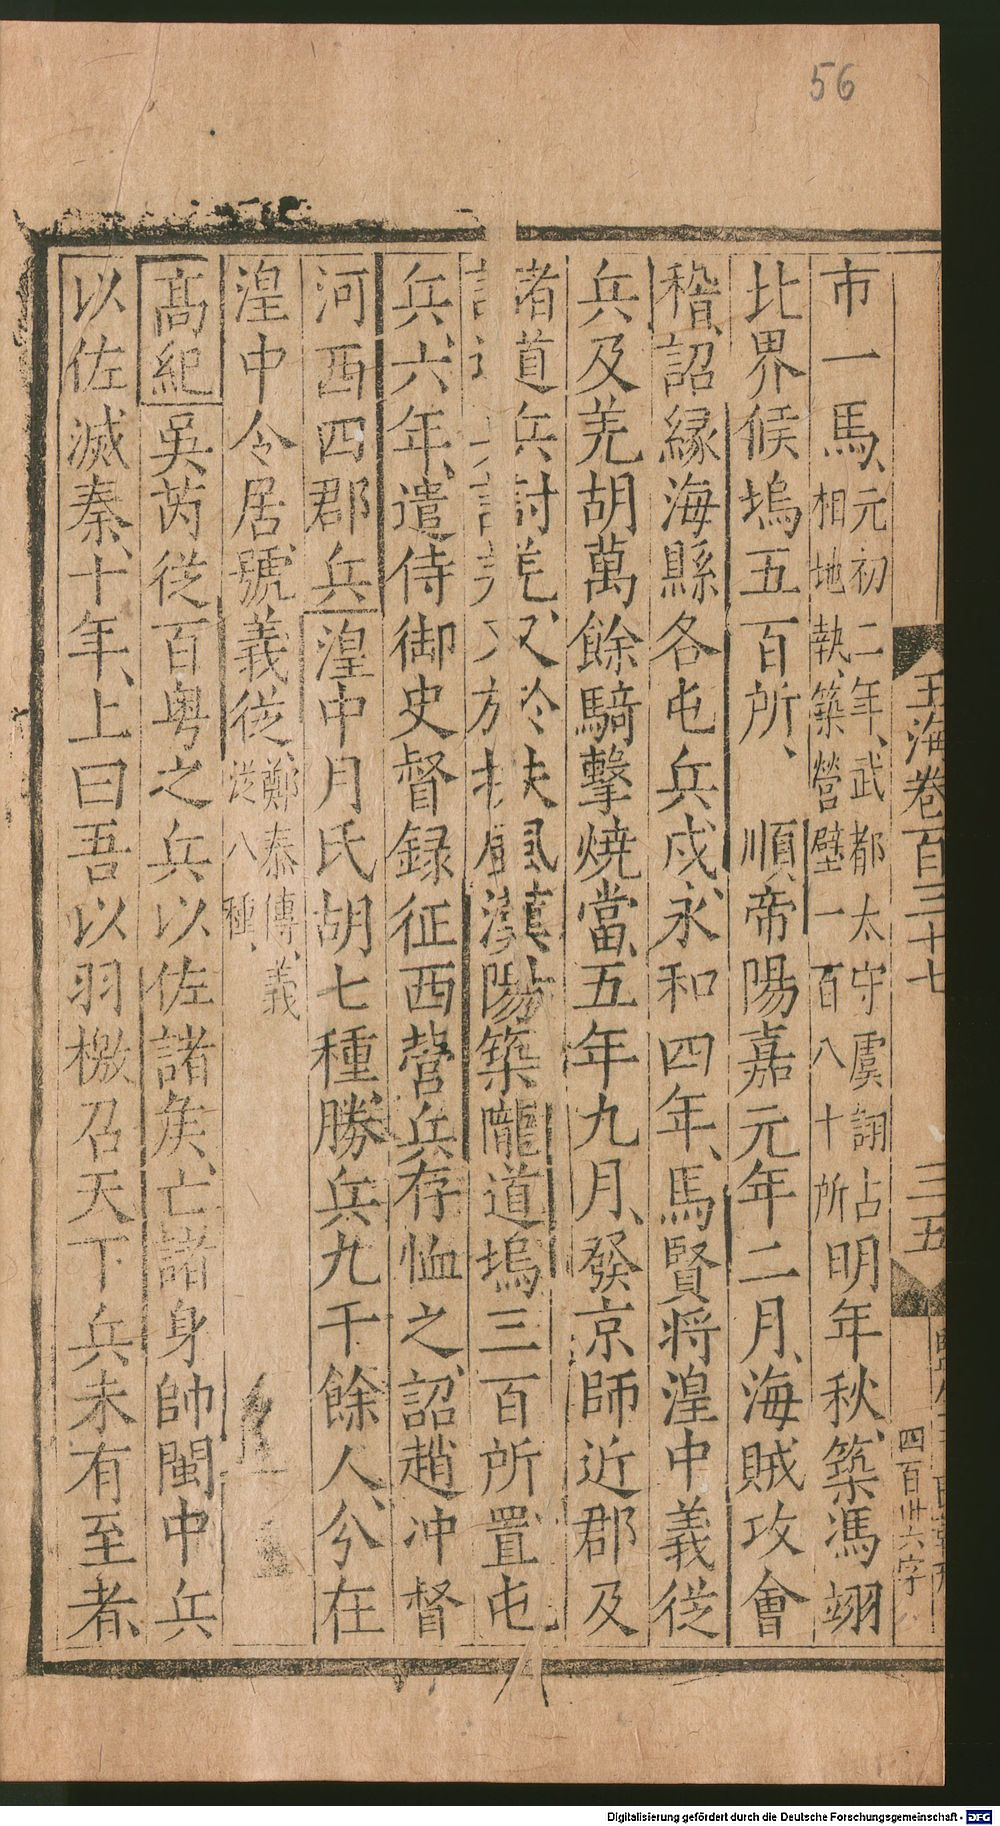 56
玉海卷百三十七 三五
四百卅六字
市一馬元初二年武都太守虞詡占相地執築營壁一百八十所明年秋築馮翊
北界候塢五百所 順帝陽嘉元年二月海賊攻會
稽詔緣海縣各屯兵戍永和四年馬賢将湟中義從
兵及羌胡萬餘騎擊燒當五年九月發京師近郡及
諸道兵討羌又扶風漢陽築隴道塢三百所置屯
兵六年遣侍御史督録征西營兵存恤之詔趙冲督
河西四郡兵湟中月氏胡七種勝兵九千餘人分在
湟中令居號義從鄭泰傳義從八種
高紀吳芮從百粤之兵以佐諸矦亡諸身帥閩中兵
以佐滅秦十年上曰吾以羽檄召天下兵未有至者
Digitalisierung gefördert durch die Deutsche Forschungsgemeinschaft - DFG